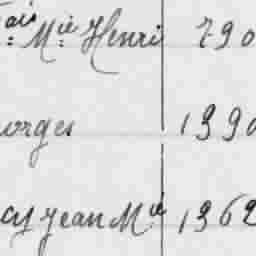 ais Mie Henri 790
orges 1990
cy Jean Mie 1962